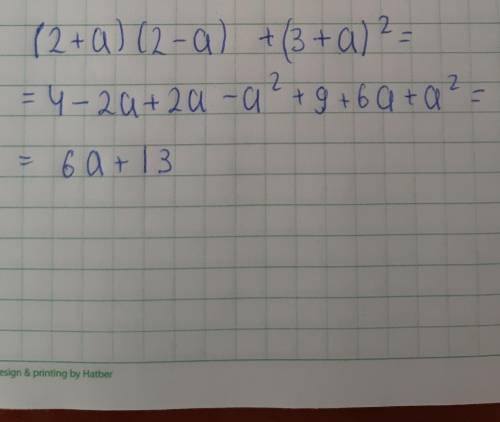 (2+a)(2-a) +(3+a)²=
=4-2a+2a-a²+9+6a+a²=
= 6a+13
esign & printing by Hatber